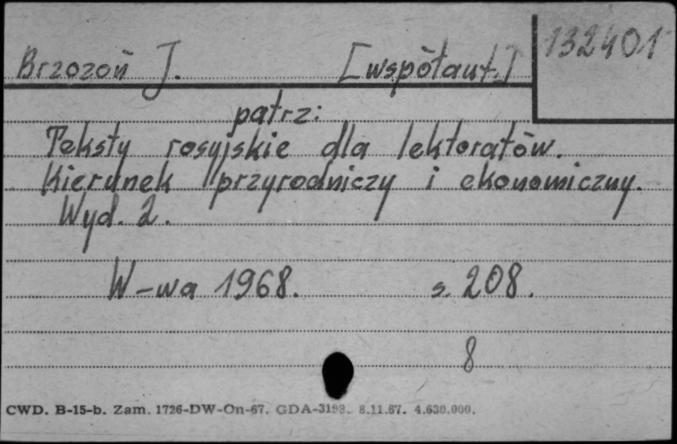 132401
Brzozoń J. [współaut.]
patrz:
Teksty rosyjskie dla lektoratów.
Kierunek przyrodniczy i ekonomiczny.
Wyd. 2.
W-wa 1968. s. 208.
8
CWD. B-15-b. Zam. 1726-DW-On-67. GDA-3193. 8.11.67. 4.630.000.